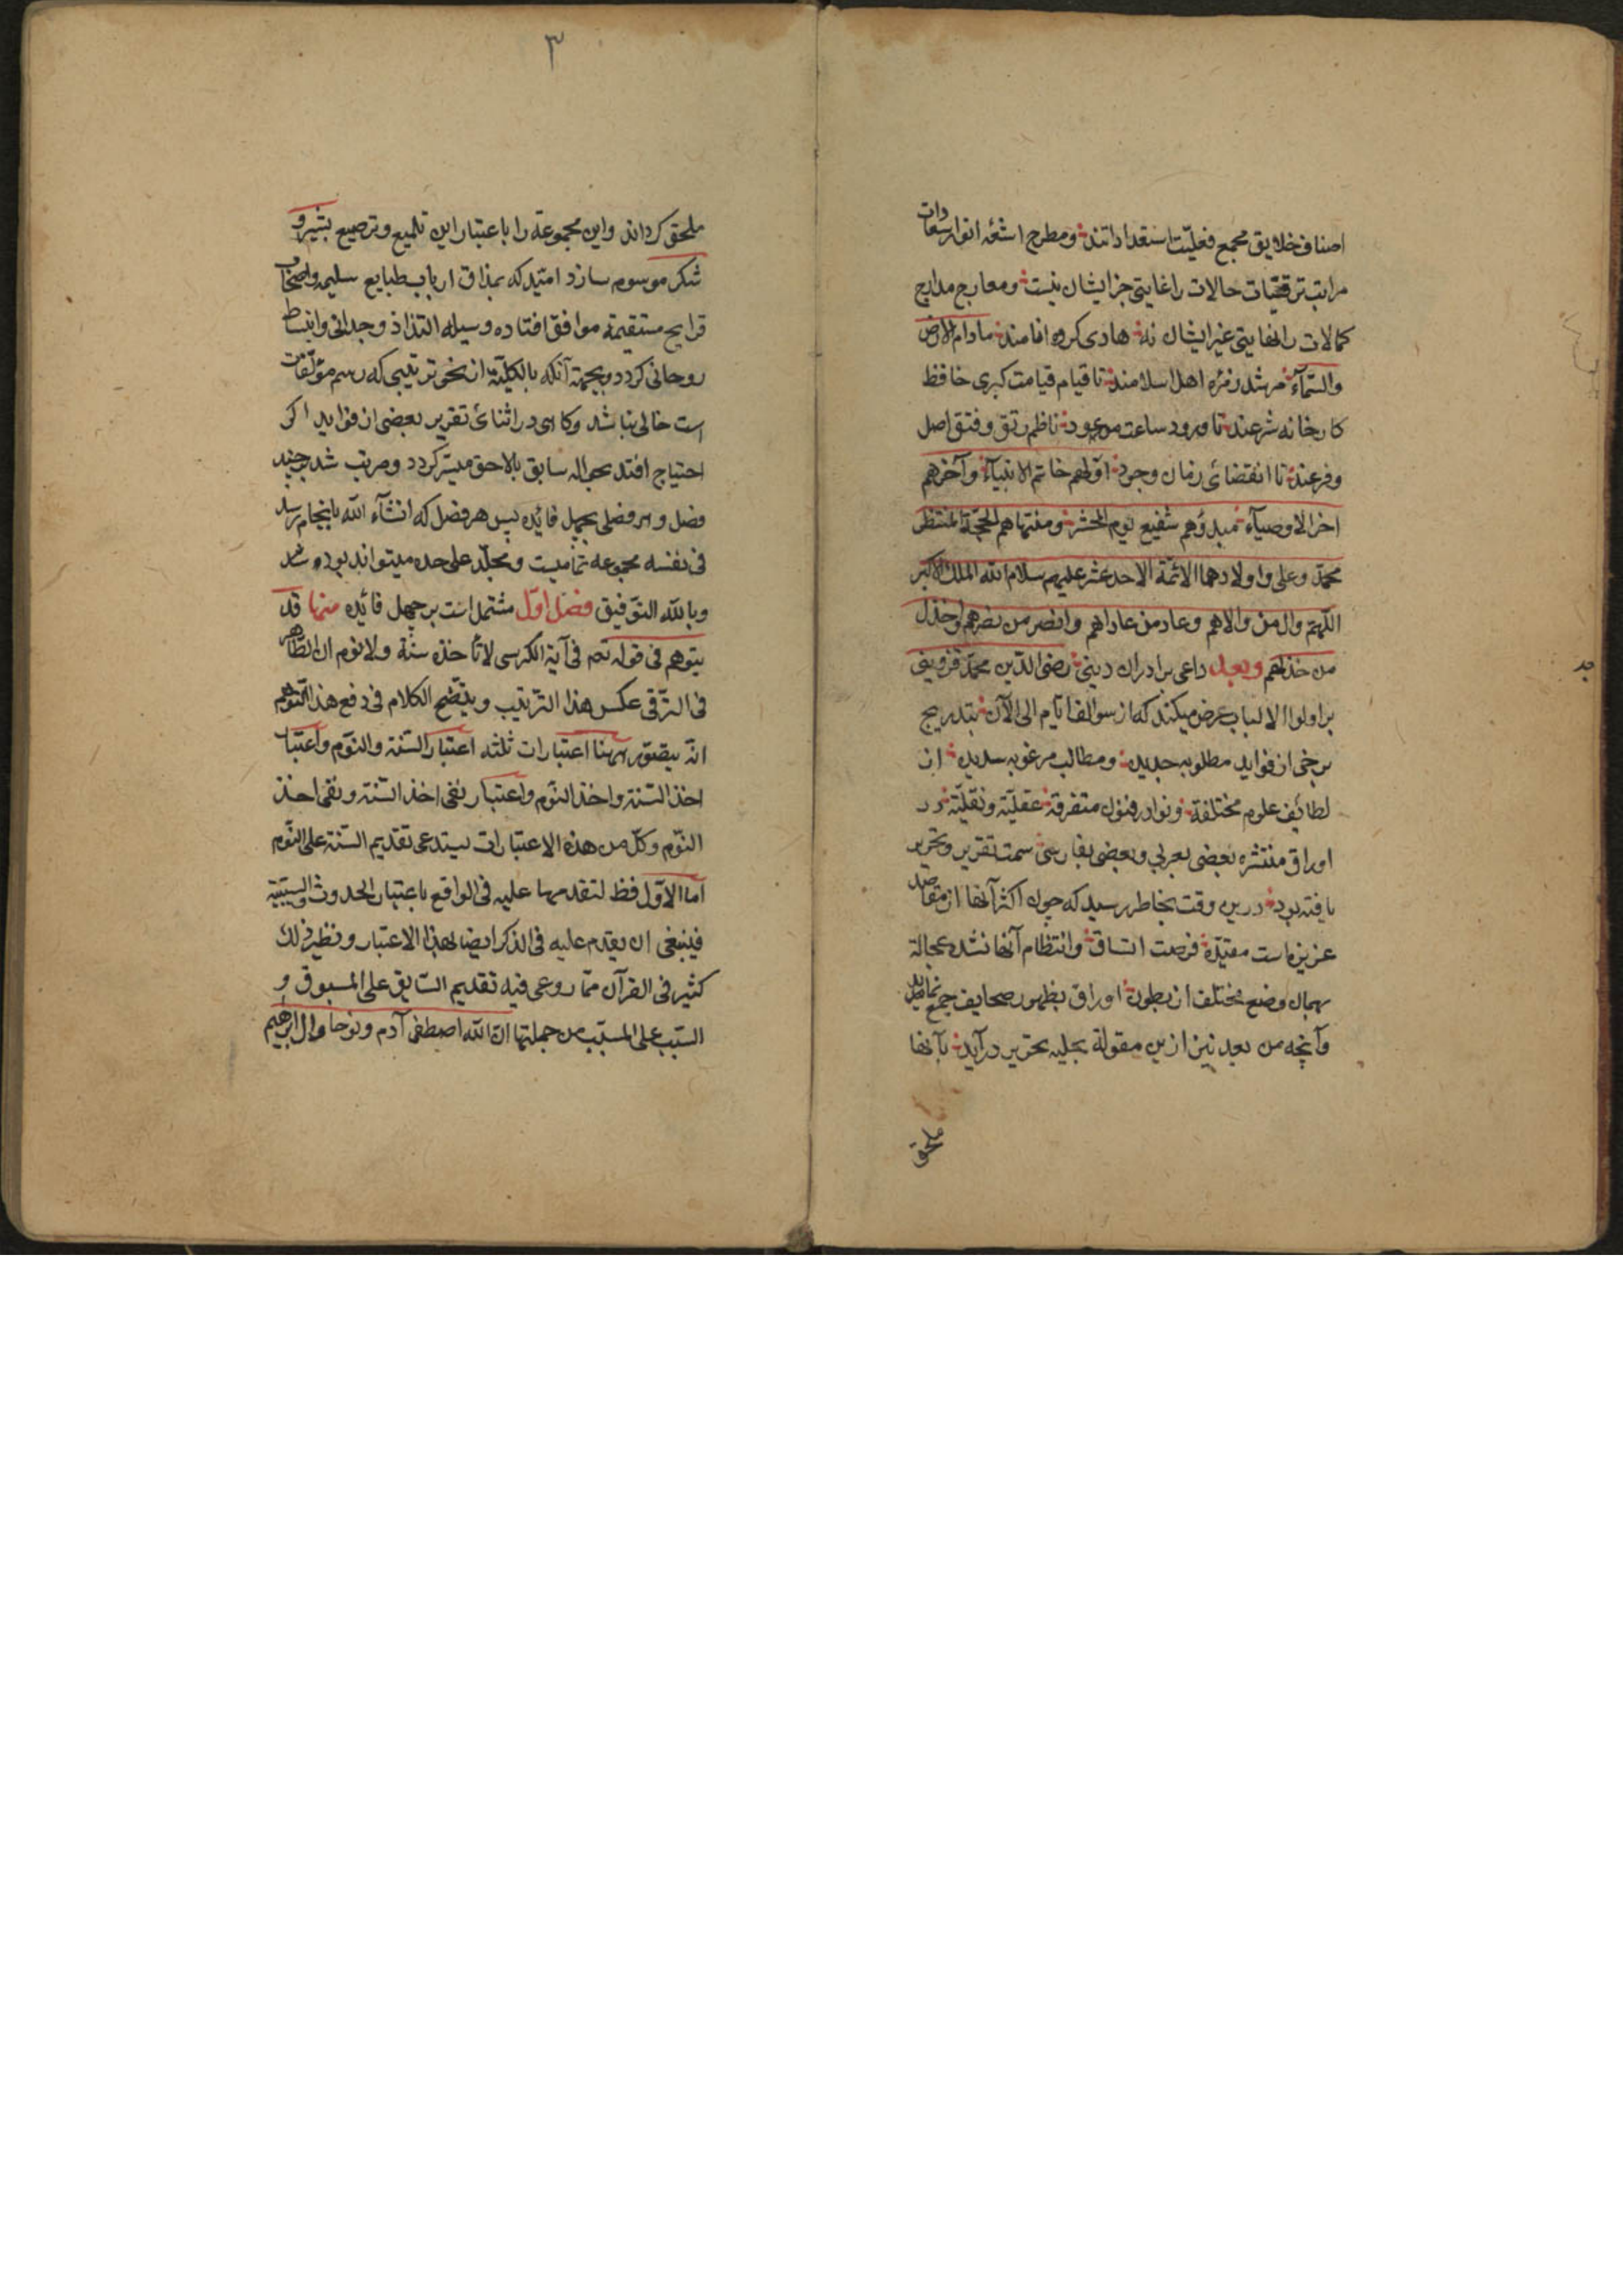 اصناف خلایق مجمع فعلیّت استعداداتند و مطرح اشعّه انوار سعادات
مراتب ترقیات حالات را غایتی جز ایشان نیست و معارج مدارج
کمالات را نهایتی غیر ایشان نه هادی کروه انامند مادام الارض
والسّمآء مرشد زمره اهل اسلامند تا قیام قیامت کبری حافظ
کارخانه شرعند تا ورود ساعت موعود ناظم رتق و فتق اصل
و فرعند تا انقضای زمان وجود اوّلهم خاتم الانبیآء و آخرهم
اخر الاوصیآء مبدؤهم شفیع یوم المحشر و منتهاهم الحجّة المنتظر
محمّد و علی و اولادهما الائمّة الاحد عشر علیهم سلام الله الملک الاکبر
اللّهم وال من والاهم و عاد من عاداهم وانصر من نصرهم واخذل
من خذلهم وبعد داعی برادران دینی رضی الدّین محمّد قزوینی
بر اولوا الالباب عرض میکند که از سوالف ایّام الی الآن بتدریج
برخی از فواید مطلوبه جدیده و مطالب مرغوبه سدیده از
لطائف علوم مختلفة و نوادر فنون متفرقة عقلیّة و نقلیّة در
اوراق منتشره بعضی بعربی و بعضی بفارسی سمت تقریر و تحریر
یافته بود درین وقت بخاطر رسید که چون اکثر آنها از مقاصد
عزیزه است مقیّده فرصت اتساق و انتظام آنها نشده عجالة
بهمان وضع مختلف از بطون اوراق بظهور صحایف جمع نماید
وآنچه من بعد نیز ازین مقولة بحلیه تحریر درآید بآنها
ملحق
٣
ملحق کرداند و این مجموعة را باعتبار این تلمیع و ترصیع بشیر و
شکر موسوم سازد امیّد که بمذاق ارباب طبایع سلیمه و اصحاب
قرایح مستقیمة موافق افتاده وسیله التذاذ وجدانی و انبساط
روحانی کردد و بجهة آنکه بالکلیّة از نحو ترتیبی که رسم مؤلّفات
است خالی نباشد و کاهی در اثنائ تقریر بعضی از فواید اکر
احتیاج افتد حواله سابق بالاحق میسّر کردد و مرتب شد بر چند
فصل و هر فصلی بچهل فائده پس هر فصل که انشآء الله بانجام رسد
فی نفسه مجموعه تمامیست و مجلّد علی حده میتواند بوده شد
و بالله التوّفیق فصل اوّل مشتمل است بر چهل فائده منها قد
یتوهم فی قوله تعم فی آیة الکرسی لا تأخذه سنة ولا نوم ان الظاهر
فی التّرقی عکس هذا التّرتیب و یتّضح الکلام فی دفع هذا التّوهم
انّه یتصّور هیهنا اعتبارات ثلثه اعتبار السّنة والنّوم و اعتبار
اخذ السّنة واخذ النّوم واعتبار نفی اخذ السّنة و نفی اخذ
النّوم و کلّ من هذه الاعتبارات یستدعی تقدیم السّنة علی النّوم
اما الاوّل فظ لتقدمها علیه فی الواقع باعتبار الحدوث والسّببیّة
فینبغی ان یقدم علیه فی الذکر ایضا بهذا الاعتبار و نظیر ذلک
کثیر فی القرآن ممّا روعی فیه تقدیم السّابق علی المسبوق و
السّبب علی المسبّب من جملتها انّ الله اصطفی آدم و نوحا و آل ابرهیم